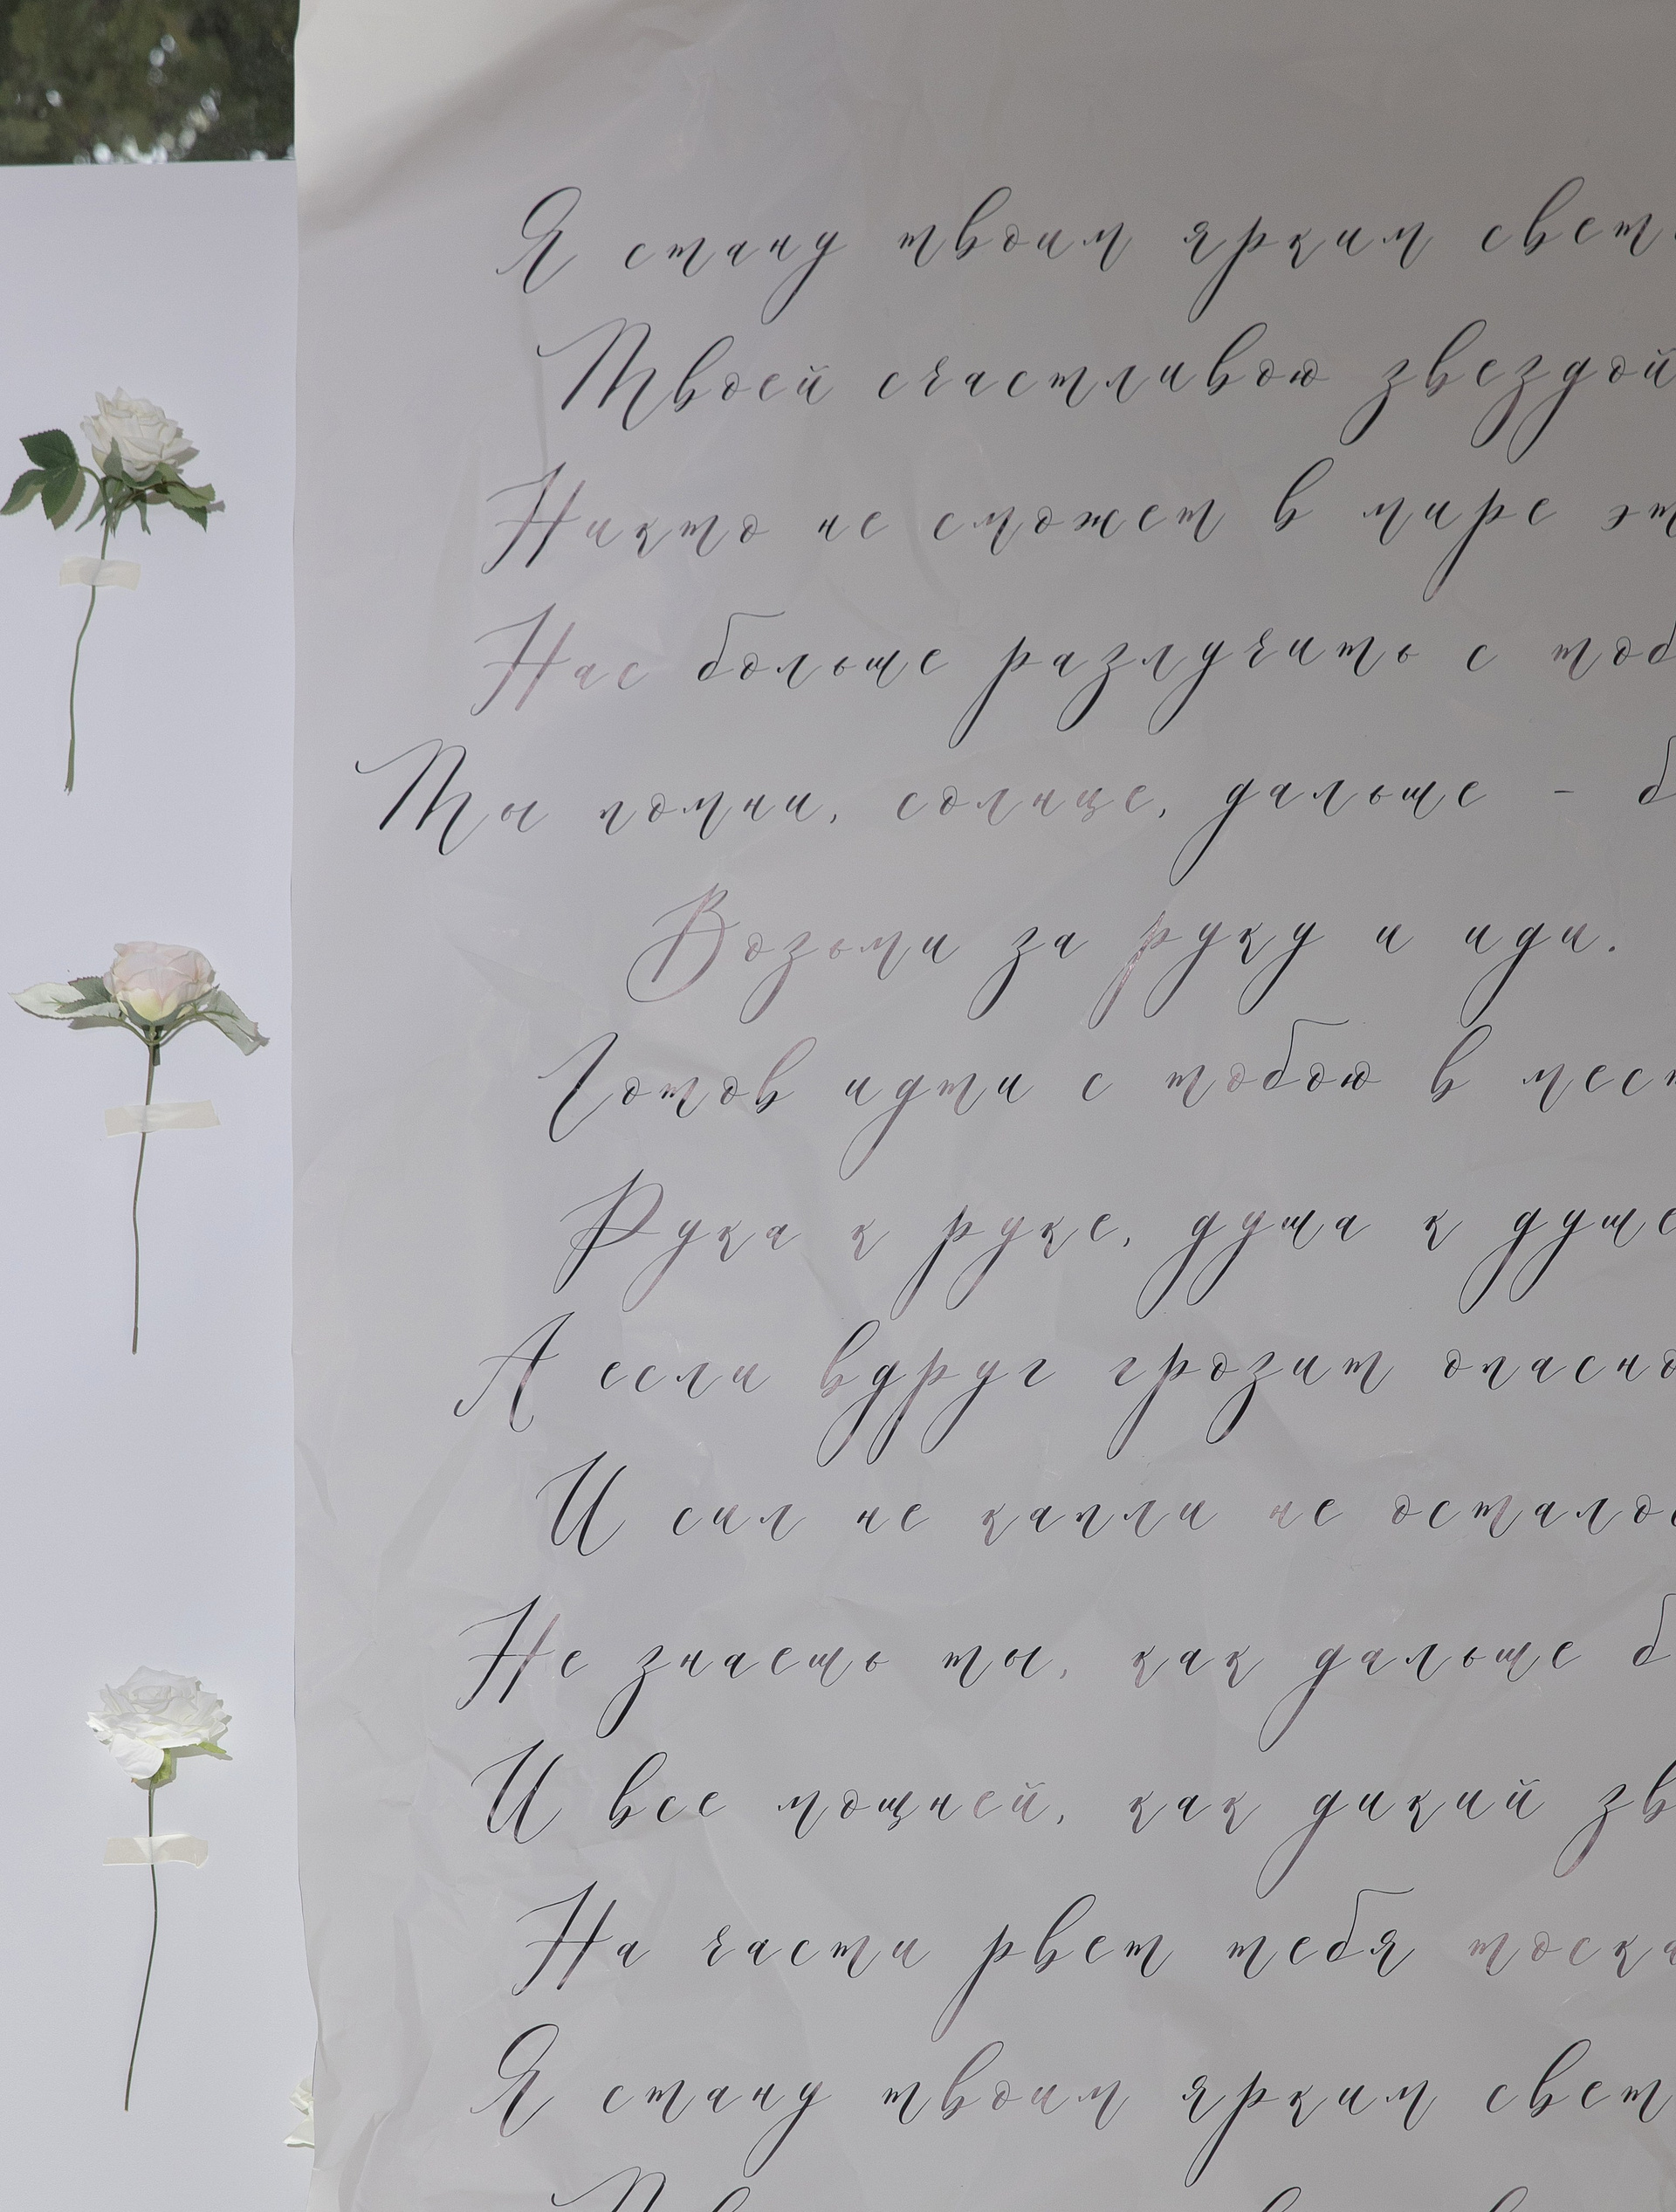 Я стану твоим ярким свет
Твоей счастливою звездой
Никто не сможет в мире эт
Нас больше разлучить с тоб
Ты помни, солнце, дальше - б
Возьми за руку и иди.
Готов идти с тобою в мест
Рука к руке, душа к душе
А если вдруг грозит опасно
И сил не капли не остало
Не знаешь ты, как дальше б
И все мощней, как дикий зв
На части рвет тебя тоска
Я стану твоим ярким свет